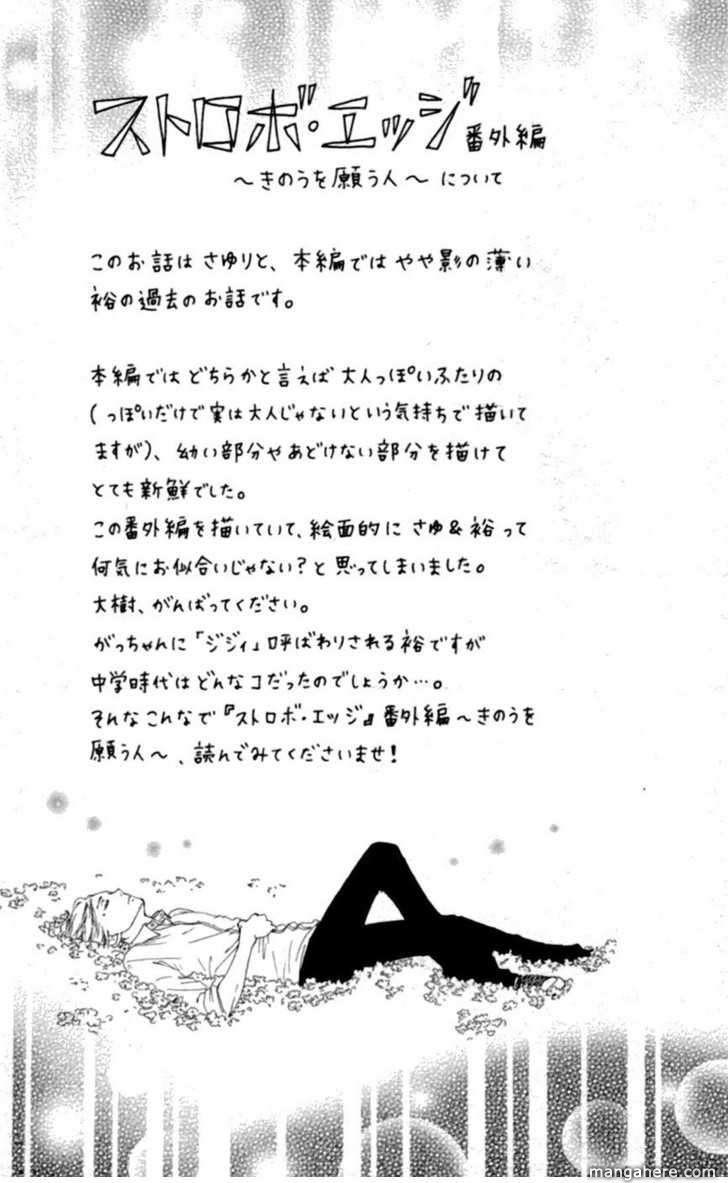 ストロボ・エッジ 番外編
～きのうを願う人～ について
このお話は さゆりと、本編では やや影の薄い
裕の過去のお話です。
本編では どちらかと言えば 大人っぽいふたりの
(っぽいだけで実は大人じゃないという気持ちで描いて
ますが)、幼い部分やあどけない部分を描けて
とても新鮮でした。
この番外編を描いていて、絵面的に さゆ&裕って
何気にお似合いじゃない?と思ってしまいました。
大樹、がんばってください。
がっちゃんに「ジジィ」呼ばわりされる裕ですが
中学時代はどんなコだったのでしょうか…。
そんなこんなで『ストロボ・エッジ』番外編～きのうを
願う人～、読んでみてくださいませ!
mangahere.com